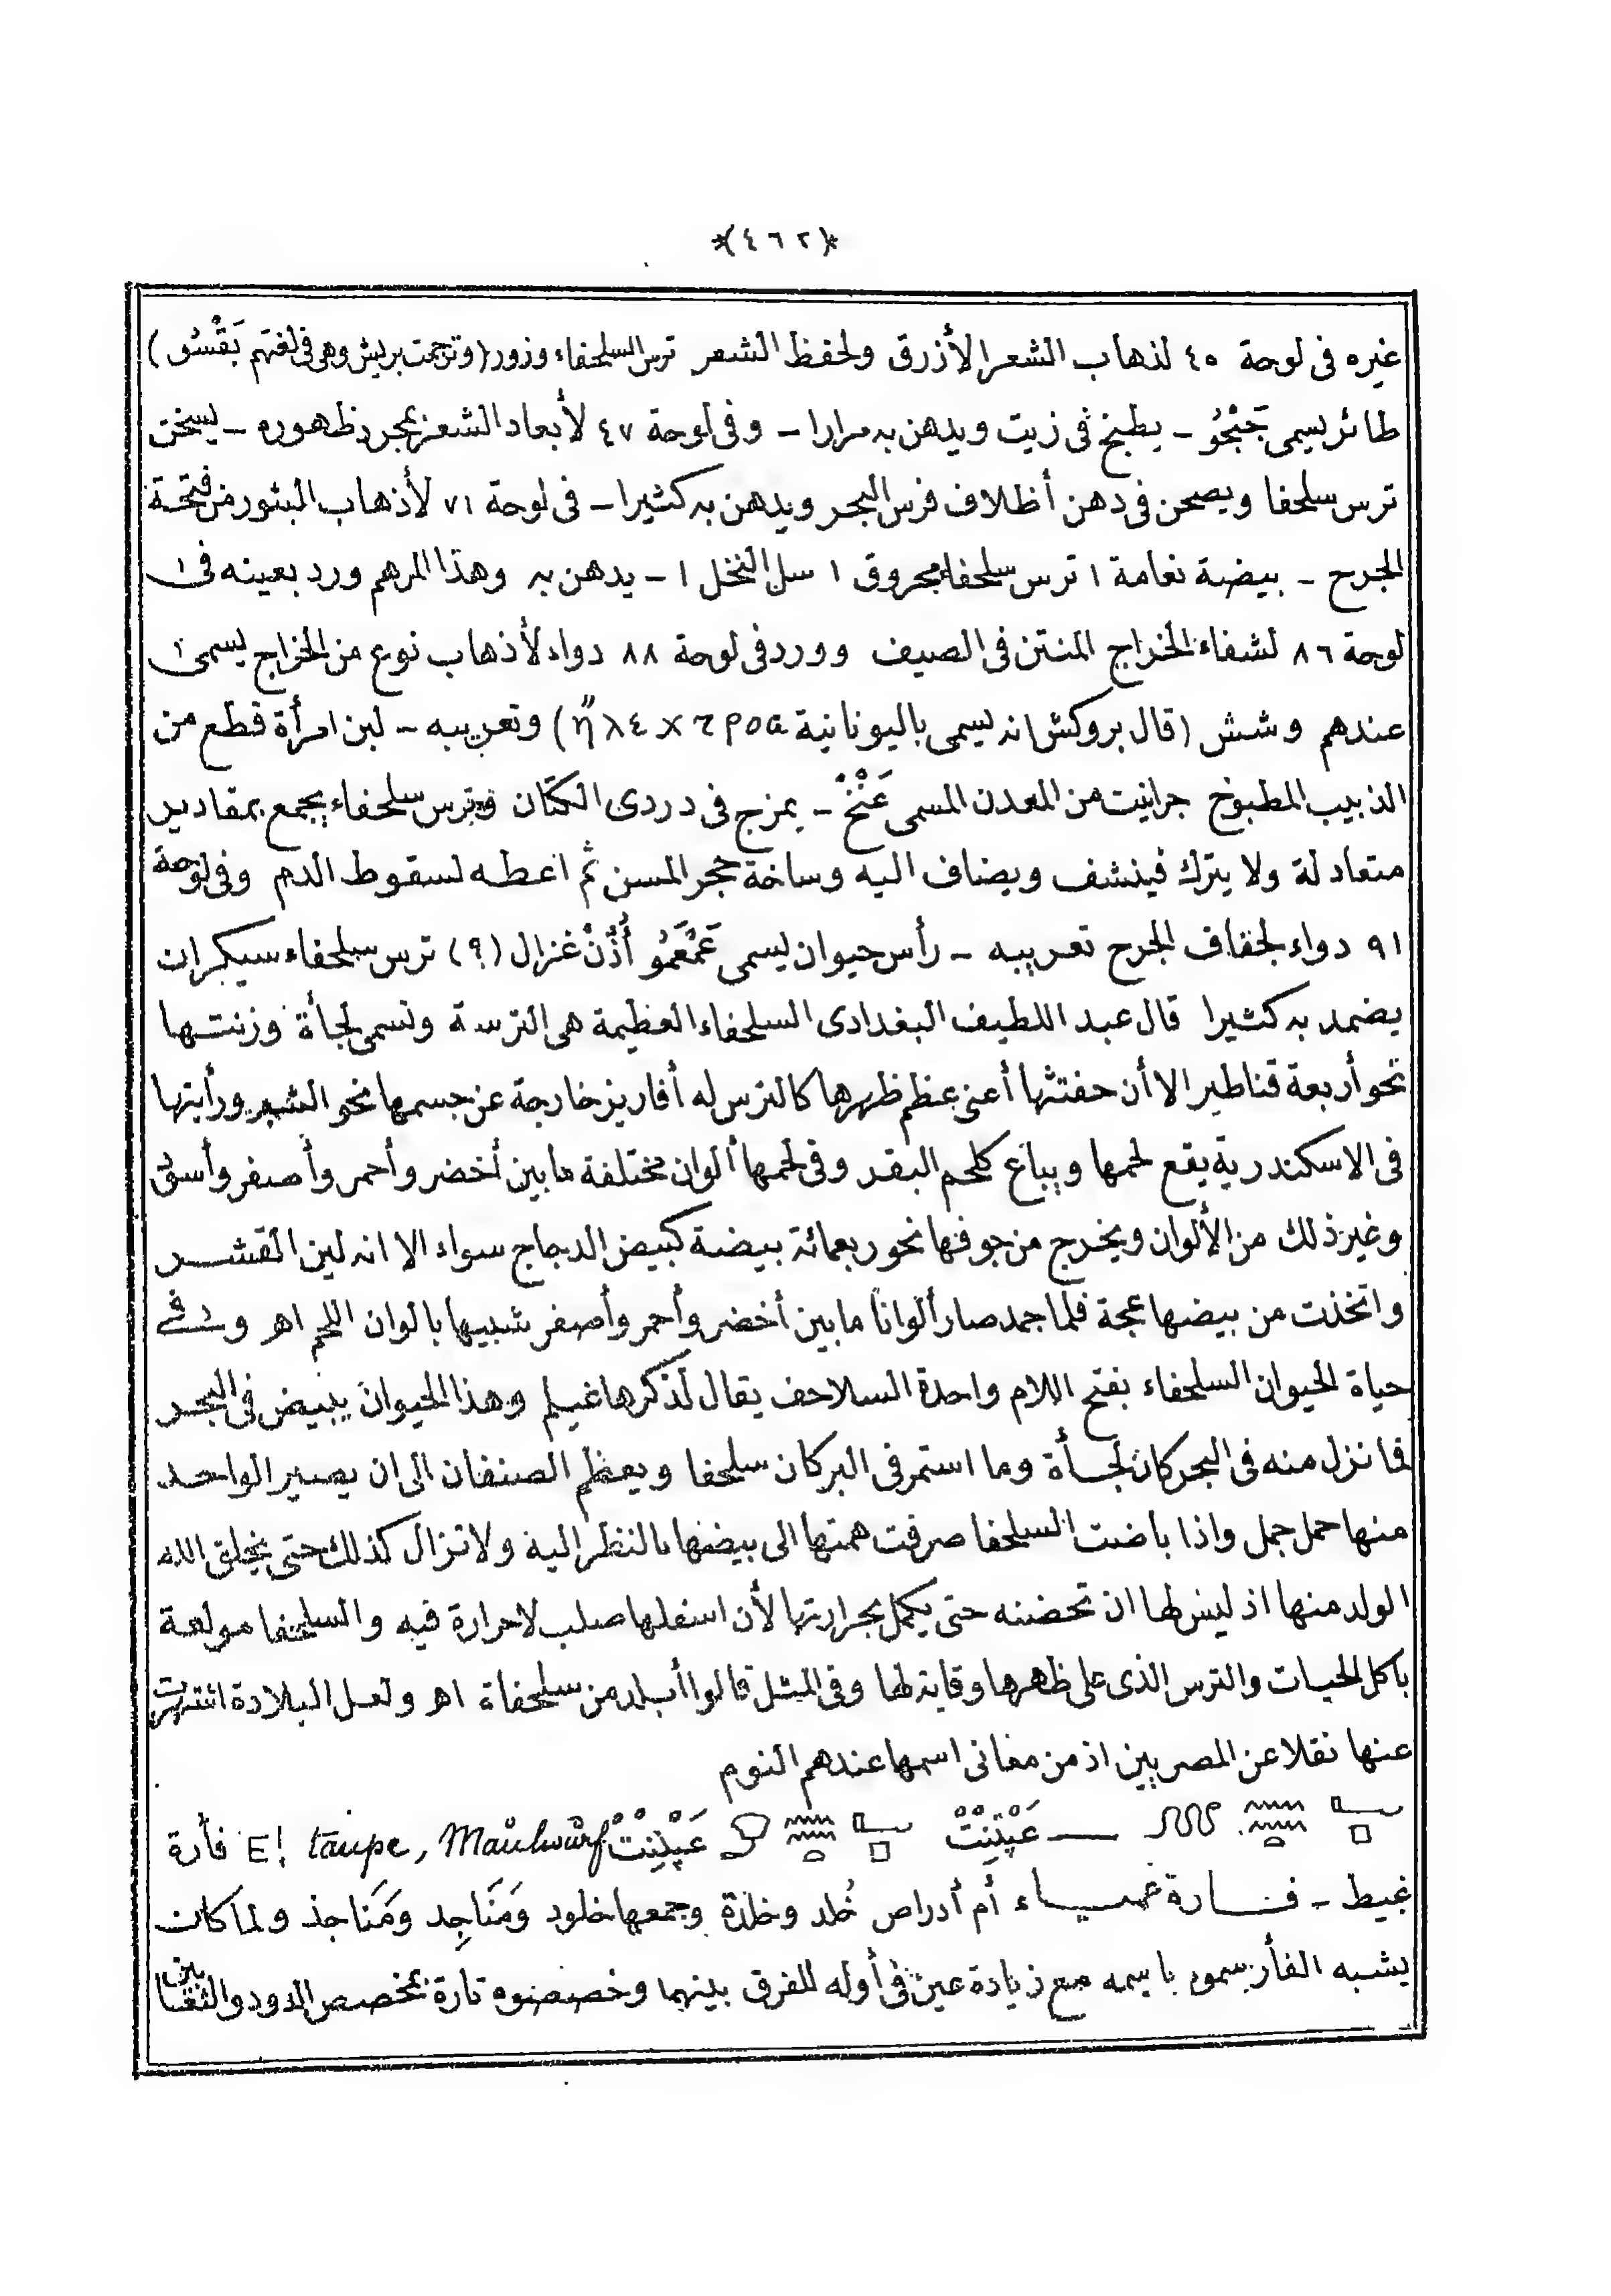 *(٤٦٢)*
غيره فى لوحة ٤٥ لذهاب الشعر الأزرق ولحفظ الشعر ترس السلحفاء وزور (وترجمت بريش وهى فى لغتهم بَقْسُو)
طائر يسمى جَبْجُو ـ يطبخ فى زيت ويدهن به مرارا ـ وفى لوحة ٤٧ لأبعاد الشعر بمجرد ظهوره ـ يسخن
ترس سلحفا ويصحن فى دهن أظلاف فرس البحر ويدهن به كثيرا ـ فى لوحة ٧١ لأذهاب البثور من فتحة
الجرح ـ بيضة نعامة ١ ترس سلحفاء محروق ١ سل النخل ١ ـ يدهن به وهذا المرهم ورد بعينه فى
لوحة ٨٦ لشفاء الخراج المنتن فى الصيف وورد فى لوحة ٨٨ دواء لأذهاب نوع من الخراج يسمى
عندهم وشش (قال بروكش انه يسمى باليونانية) وتعريبه ـ لبن امرأة قطع من
الذبيب المطبوخ جرانيت من المعدن المسمى عَنْخْ ـ يمزج فى دردى الكتان وترس سلحفاء يجمع بمقادير
متعادلة ولا يترك فينشف ويضاف اليه وساخة حجر المسن ثم اعطه لسقوط الدم وفى لوحة
٩١ دواء لجفاف الجرح تعريبه ـ رأس حيوان يسمى عَمْعَمُو أُذُن غزال (؟) ترس سلحفاء سيكران
يضمد به كثيرا قال عبد اللطيف البغدادى السلحفاء العظيمة هى الترسة وتسمى لجأة وزنتها
نحو أربعة قناطير الا أن حفتثها أعنى عظم ظهرها كالترس له أفاريز خارجة عن جسمها نحو الشبر ورأيتها
فى الاسكندرية يقع لحمها ويباع كلحم البقر وفى لحمها ألوان مختلفة ما بين أخضر وأحمر وأصفر وأسود
وغير ذلك من الألوان ويخرج من جوفها نحو ربعمائة بيضة كبيض الدجاج سواء الا انه لين القشر
واتخذت من بيضها عجة فلما جمد صار ألواناً ما بين أخضر وأحمر وأصفر شبيها بالوان اللحم اهـ وفى
حياة الحيوان السلحفاء بفتح اللام واحدة السلاحف يقال لذكرها غيلم وهذا الحيوان يبيض فى البحر
فما نزل منه فى البحر كان لجأة وما استمر فى البر كان سلحفا ويعظم الصنفان الى ان يصير الواحد
منها حمل جمل واذا باضت السلحفا صرفت همتها الى بيضها بالنظر اليه ولا تزال كذلك حتى يخلق الله
الولد منها اذ ليس لها ان تحضنه حتى يكمل بحرارتها لأن اسفلها صلب لا حرارة فيه والسلحفا مولعة
باكل الحيات والترس الذى على ظهرها وقاية لها وفى المثل قالوا أبلد من سلحفاة اهـ ولعل البلادة اشتهرت
عنها نقلا عن المصريين اذ من معانى اسمها عندهم النوم
عَپْنِنْتْ ــ عَپْنِنْتْ E! taupe, Maulwurf فأرة
غيط ـ فارة عمياء أم أدراص خُلد وخلدة وجمعها خلود وَمَنَاجِد ومَنَاجذ ولما كانت
يشبه الفأر سموه باسمه مع زيادة عين فى أوله للفرق بينهما وخصصوه تارة بمخصص الدود والثعابين